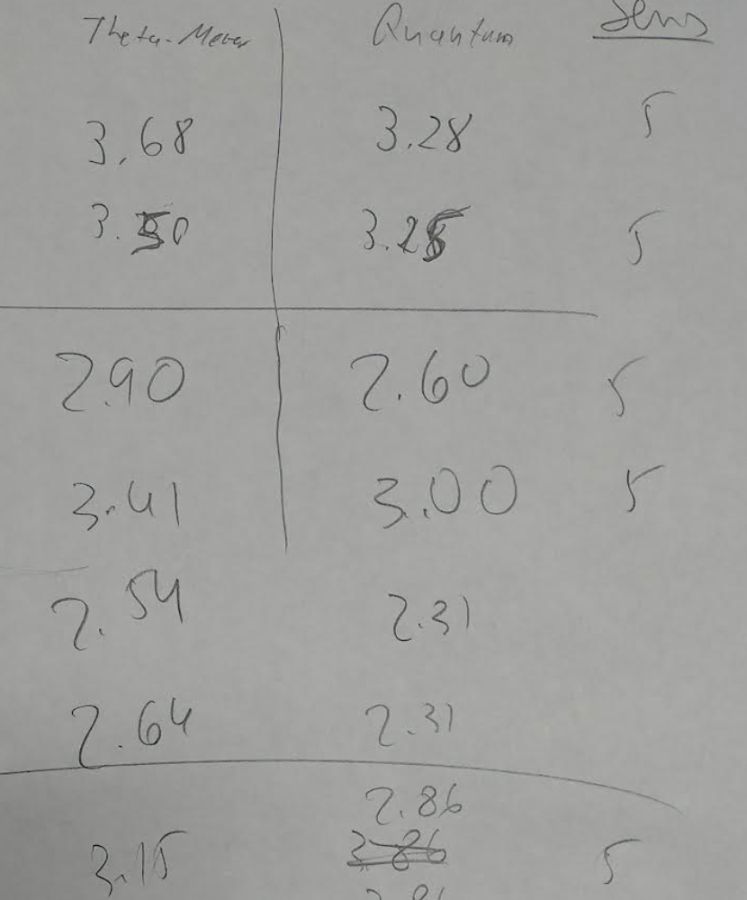 Theta-Meter Quantum Sens
3.68 3.28 5
3.50 3.25 5
2.90 2.60 5
3.41 3.00 5
2.54 2.31
2.64 2.31
2.86
3.15 2.86 5